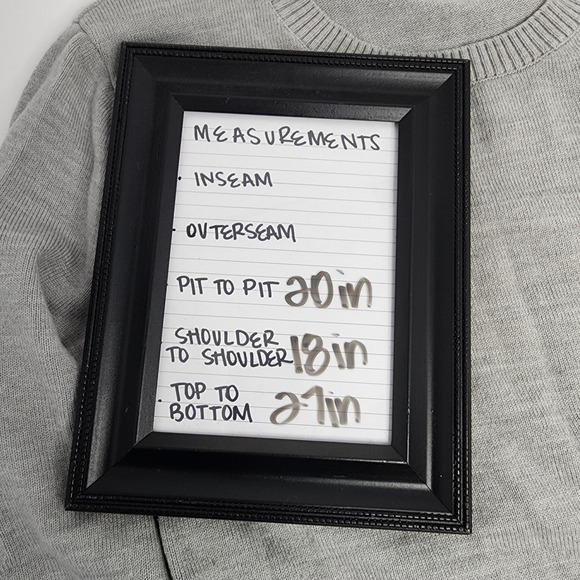 MEASUREMENTS
· INSEAM
· OUTERSEAM
· PIT TO PIT 20in
· SHOULDER
TO SHOULDER 18in
· TOP TO
BOTTOM 27in